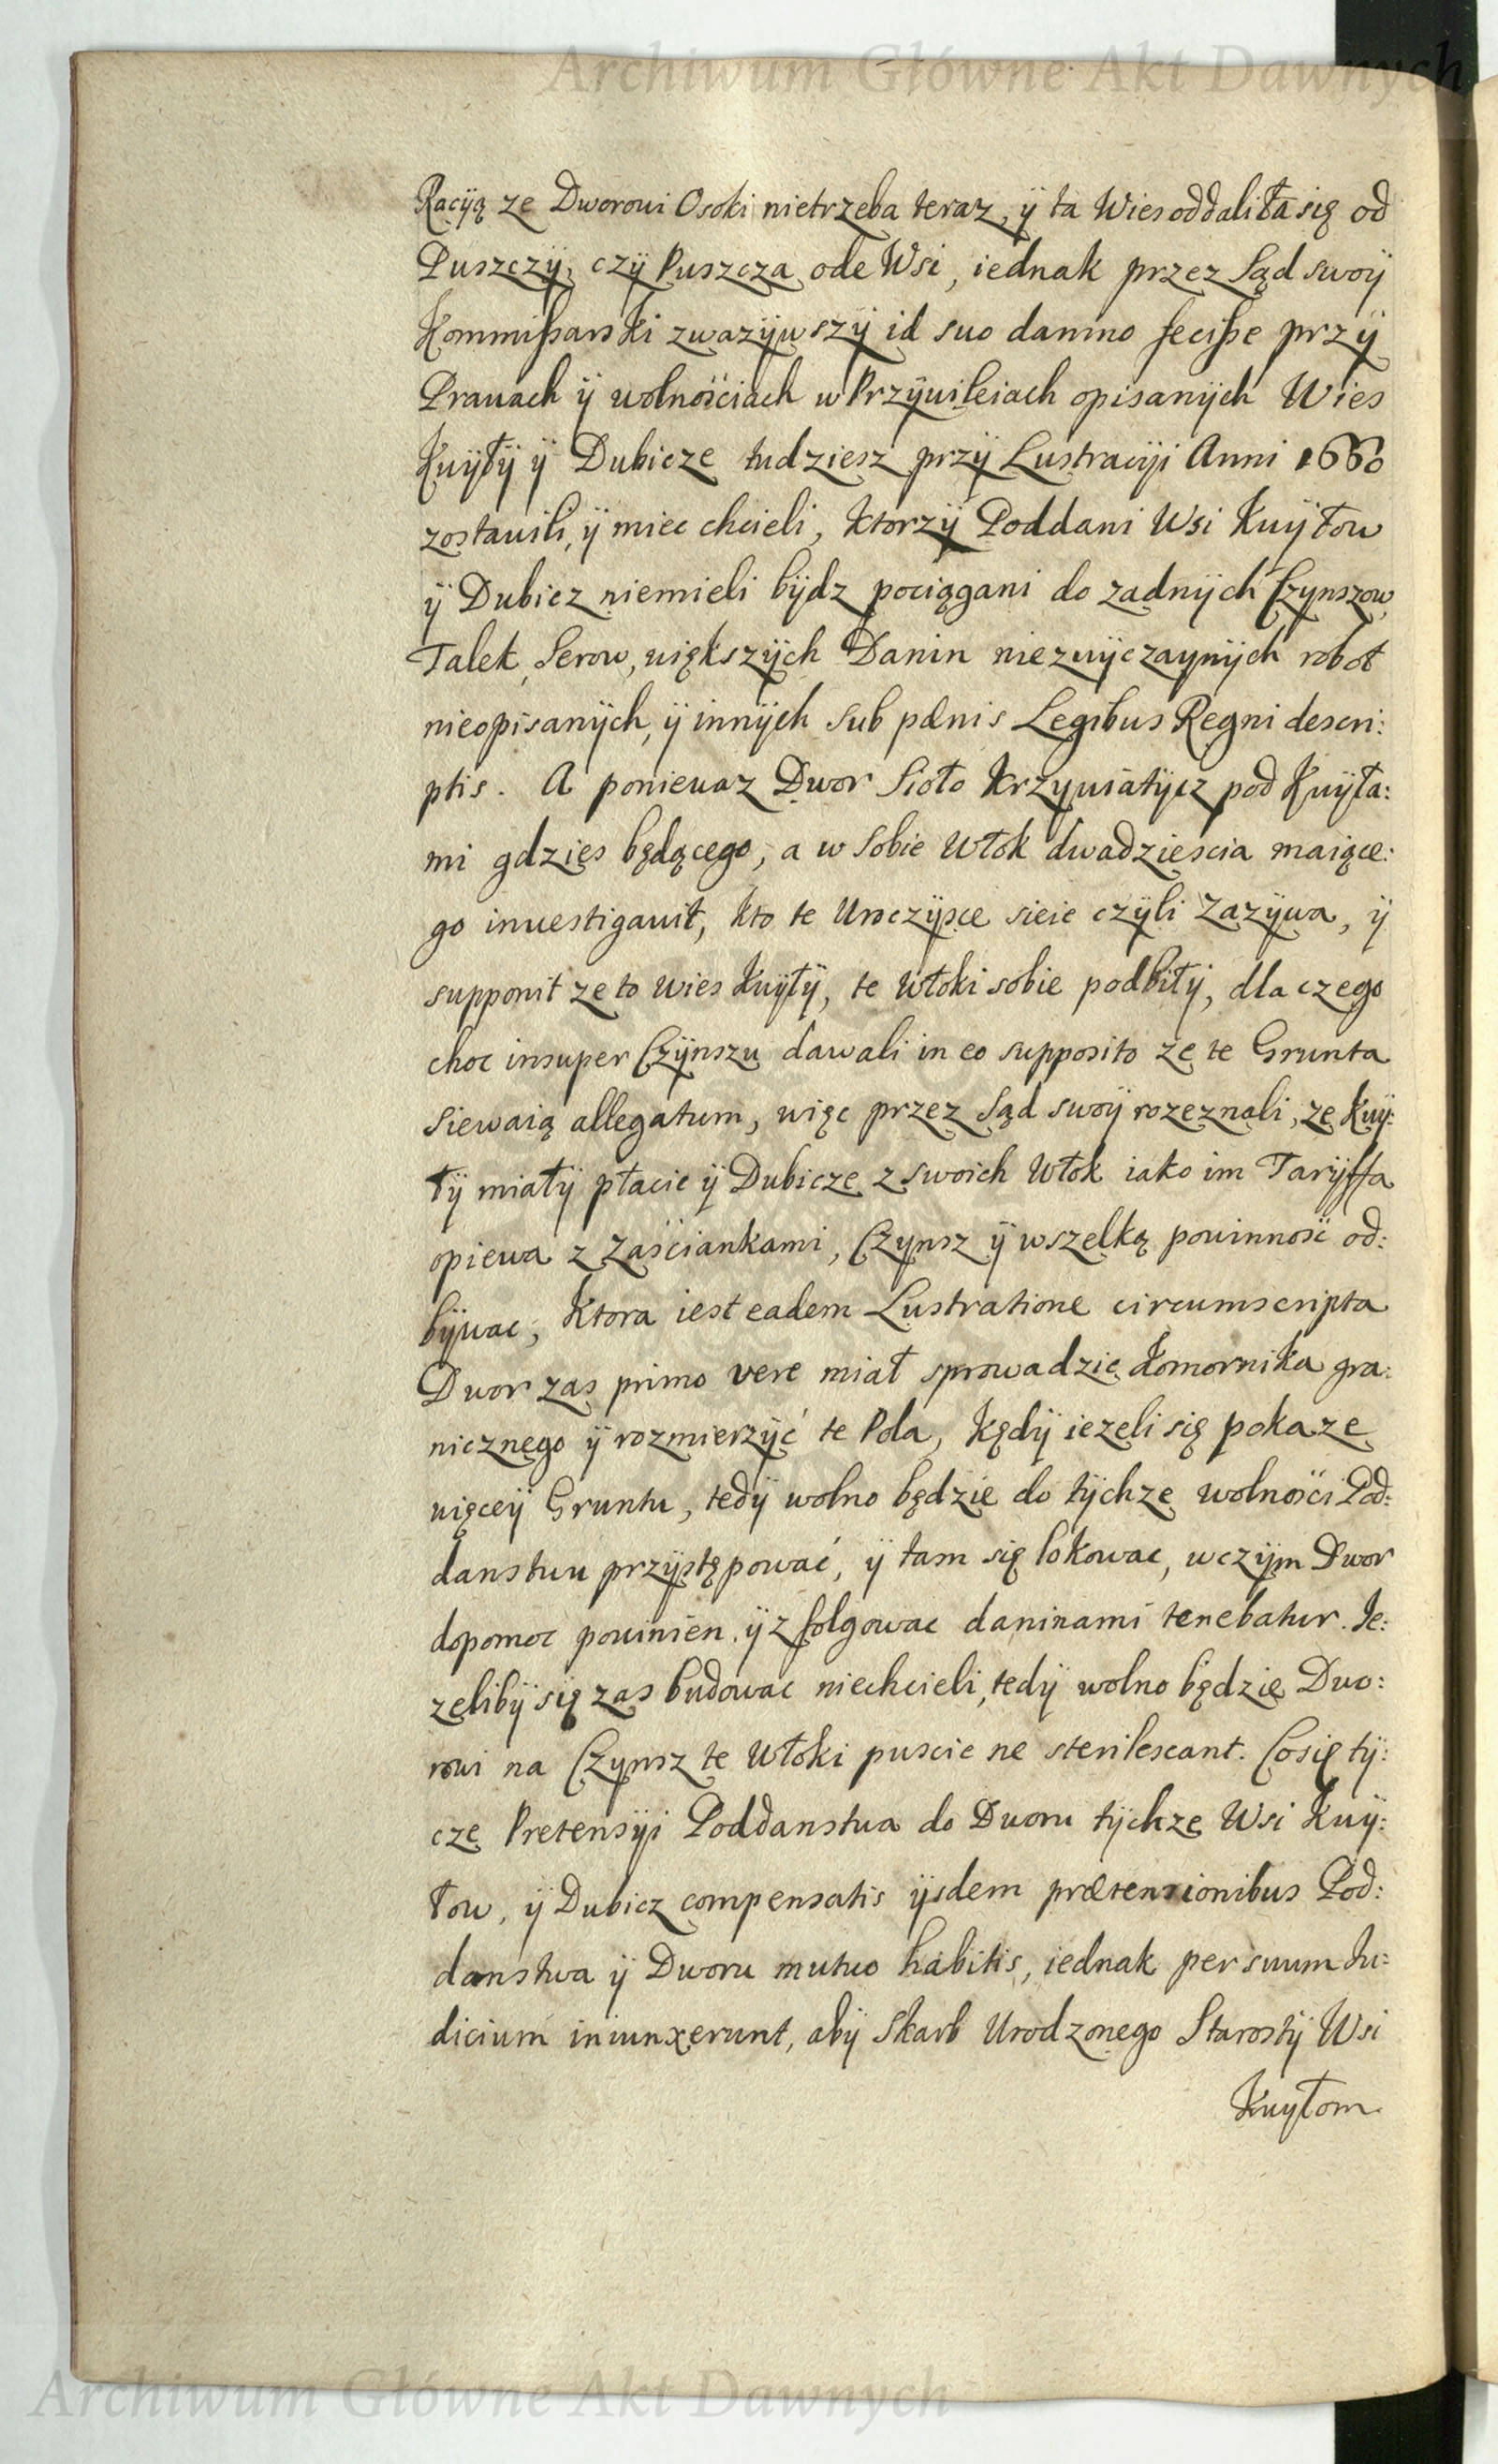 Archiwum Główne Akt Dawnych
Racÿą ze Dworowi Osoki nietrzeba teraz, ÿ ta Wies oddaliła się od
Puszczÿ, czÿ Puszcza ode Wsi, iednak przez Sąd swoÿ
Kommißarski zwazÿwszÿ id suo damno feciße przÿ
Prawach ÿ wolnościach w Przÿwileiach opisanÿch Wies
Kuÿłÿ ÿ Dubicze tudziesz przÿ Lustracÿi Anni 1660
zostawili, ÿ miec chcieli, ktorzÿ Poddani Wsi Kuÿłow
ÿ Dubicz niemieli bÿdz pociągani do zadnÿch Czynszow,
Talek, Serow, większÿch Danin niezwÿczaynÿch robot
nieopisanÿch, ÿ innÿch sub pænis Legibus Regni descri:
ptis. A poniewaz Dwor Sioło Krzywiatÿcz pod Kuÿła:
mi gdzies będącego, a w sobie Włok dwadziescia maiące:
go investigavit, kto te Uroczÿsce sieie czÿli Zazÿwa, ÿ
supponit ze to wies Kuÿłÿ, te Włoki sobie podbiłÿ, dla czego
choc insuper Czÿnszu dawali in eo supposito ze te Grunta
siewaią allegatum, więc przez Sąd swoÿ rozeznali, ze Kuÿ:
łÿ miałÿ płacic ÿ Dubicze z swoich Włok iako im Tarÿffa
opiewa z Zaściankami, Czynsz ÿ wszelką powinność od:
bÿwac, ktora iest eadem Lustratione circumscripta
Dwor zas primo vere miał sprowadzic Komornika gra:
nicznego ÿ rozmierzÿć te Pola, kędÿ iezeli się pokaze
więceÿ Gruntu, tedÿ wolno będzie do tÿchze wolności Pod:
danstwu przÿstępować, ÿ tam się lokowac, w czÿm Dwor
dopomoc powinien, ÿ z folgowac daninami tenebatur. Je:
zelibÿ się zas budowac niechcieli, tedÿ wolno będzie Dwo:
rowi na Czynsz te Włoki puscic ne sterilescant. Co się tÿ:
cze Pretensÿi Poddanstwa do Dworu tÿchze Wsi Kuÿ:
łow, ÿ Dubicz compensatis ÿsdem prætensionibus Pod:
danstwa ÿ Dworu mutuo habitis, iednak per suum Ju:
dicium iniunxerunt, abÿ Skarb Urodzonego Starostÿ Wsi
Kuyłom
Archiwum Główne Akt Dawnych